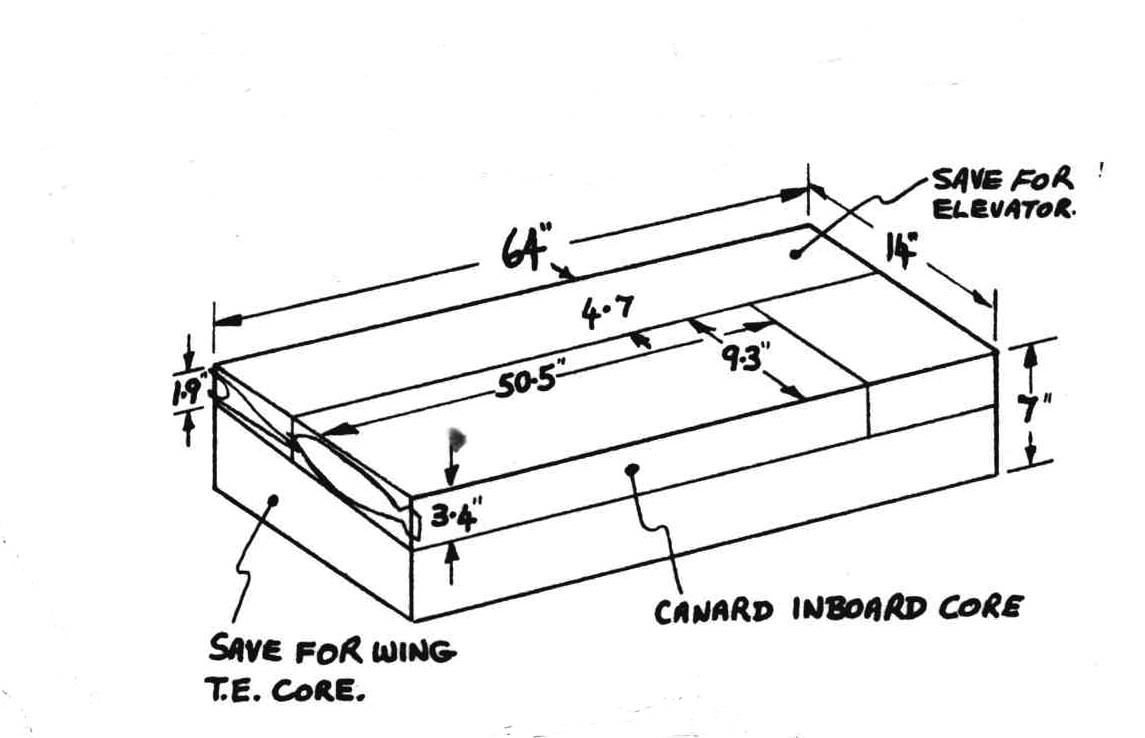 SAVE FOR
ELEVATOR.
64"
14"
4.7
1.9"
50.5"
9.3"
7"
3.4"
CANARD INBOARD CORE
SAVE FOR WING
T.E. CORE.